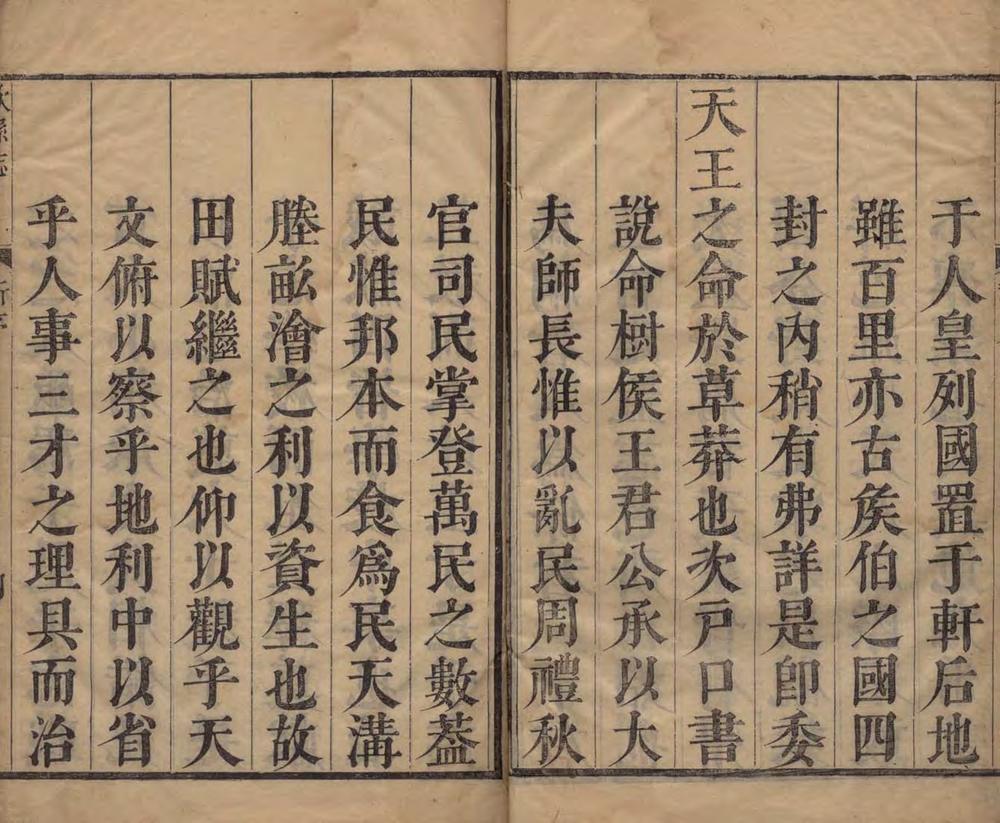 于人皇列國置于軒后地
雖百里亦古矦伯之國四
封之內稍有弗詳是卽委
天王之命於草莽也次戸口書
說命樹侯王君公承以大
夫師長惟以亂民周禮秋
官司民掌登萬民之數葢
民惟邦本而食爲民天溝
塍畝澮之利以資生也故
田賦繼之也仰以觀乎天
文俯以察乎地利中以省
乎人事三才之理具而治
縣志